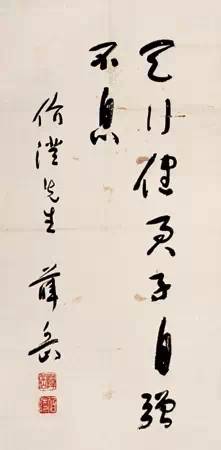 天行健君子自強
不息
价澄先生 薛岳